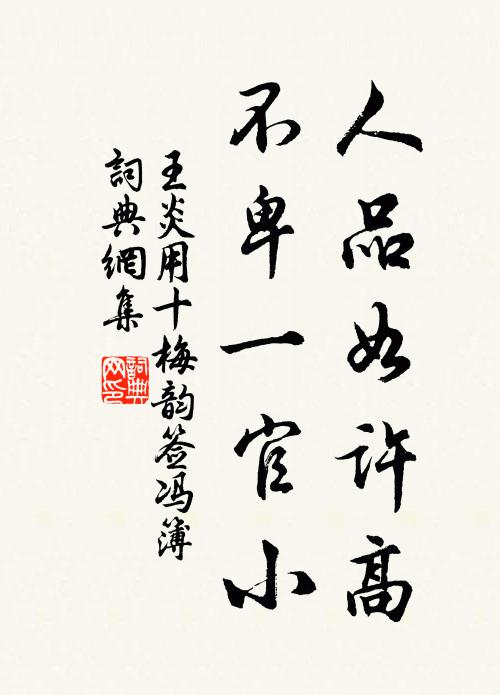 人品如许高
不卑一官小
王炎用十梅韵签冯簿
詞典網集
詞典
网印